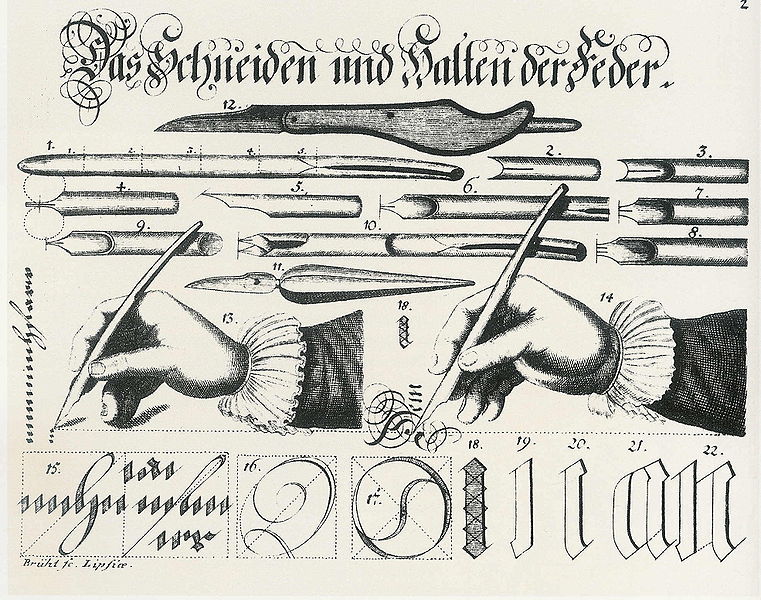 2
Das Schneiden und Halten der Feder.
12.
1. 1. 2. 3. 4. 5. 2. 3.
4. 5. 6. 7.
9. 10. 8.
11.
13. 18. 14
15. 16. 17. 18. 19. 20. 21. 22.
Brühl sc. Lipsiæ.